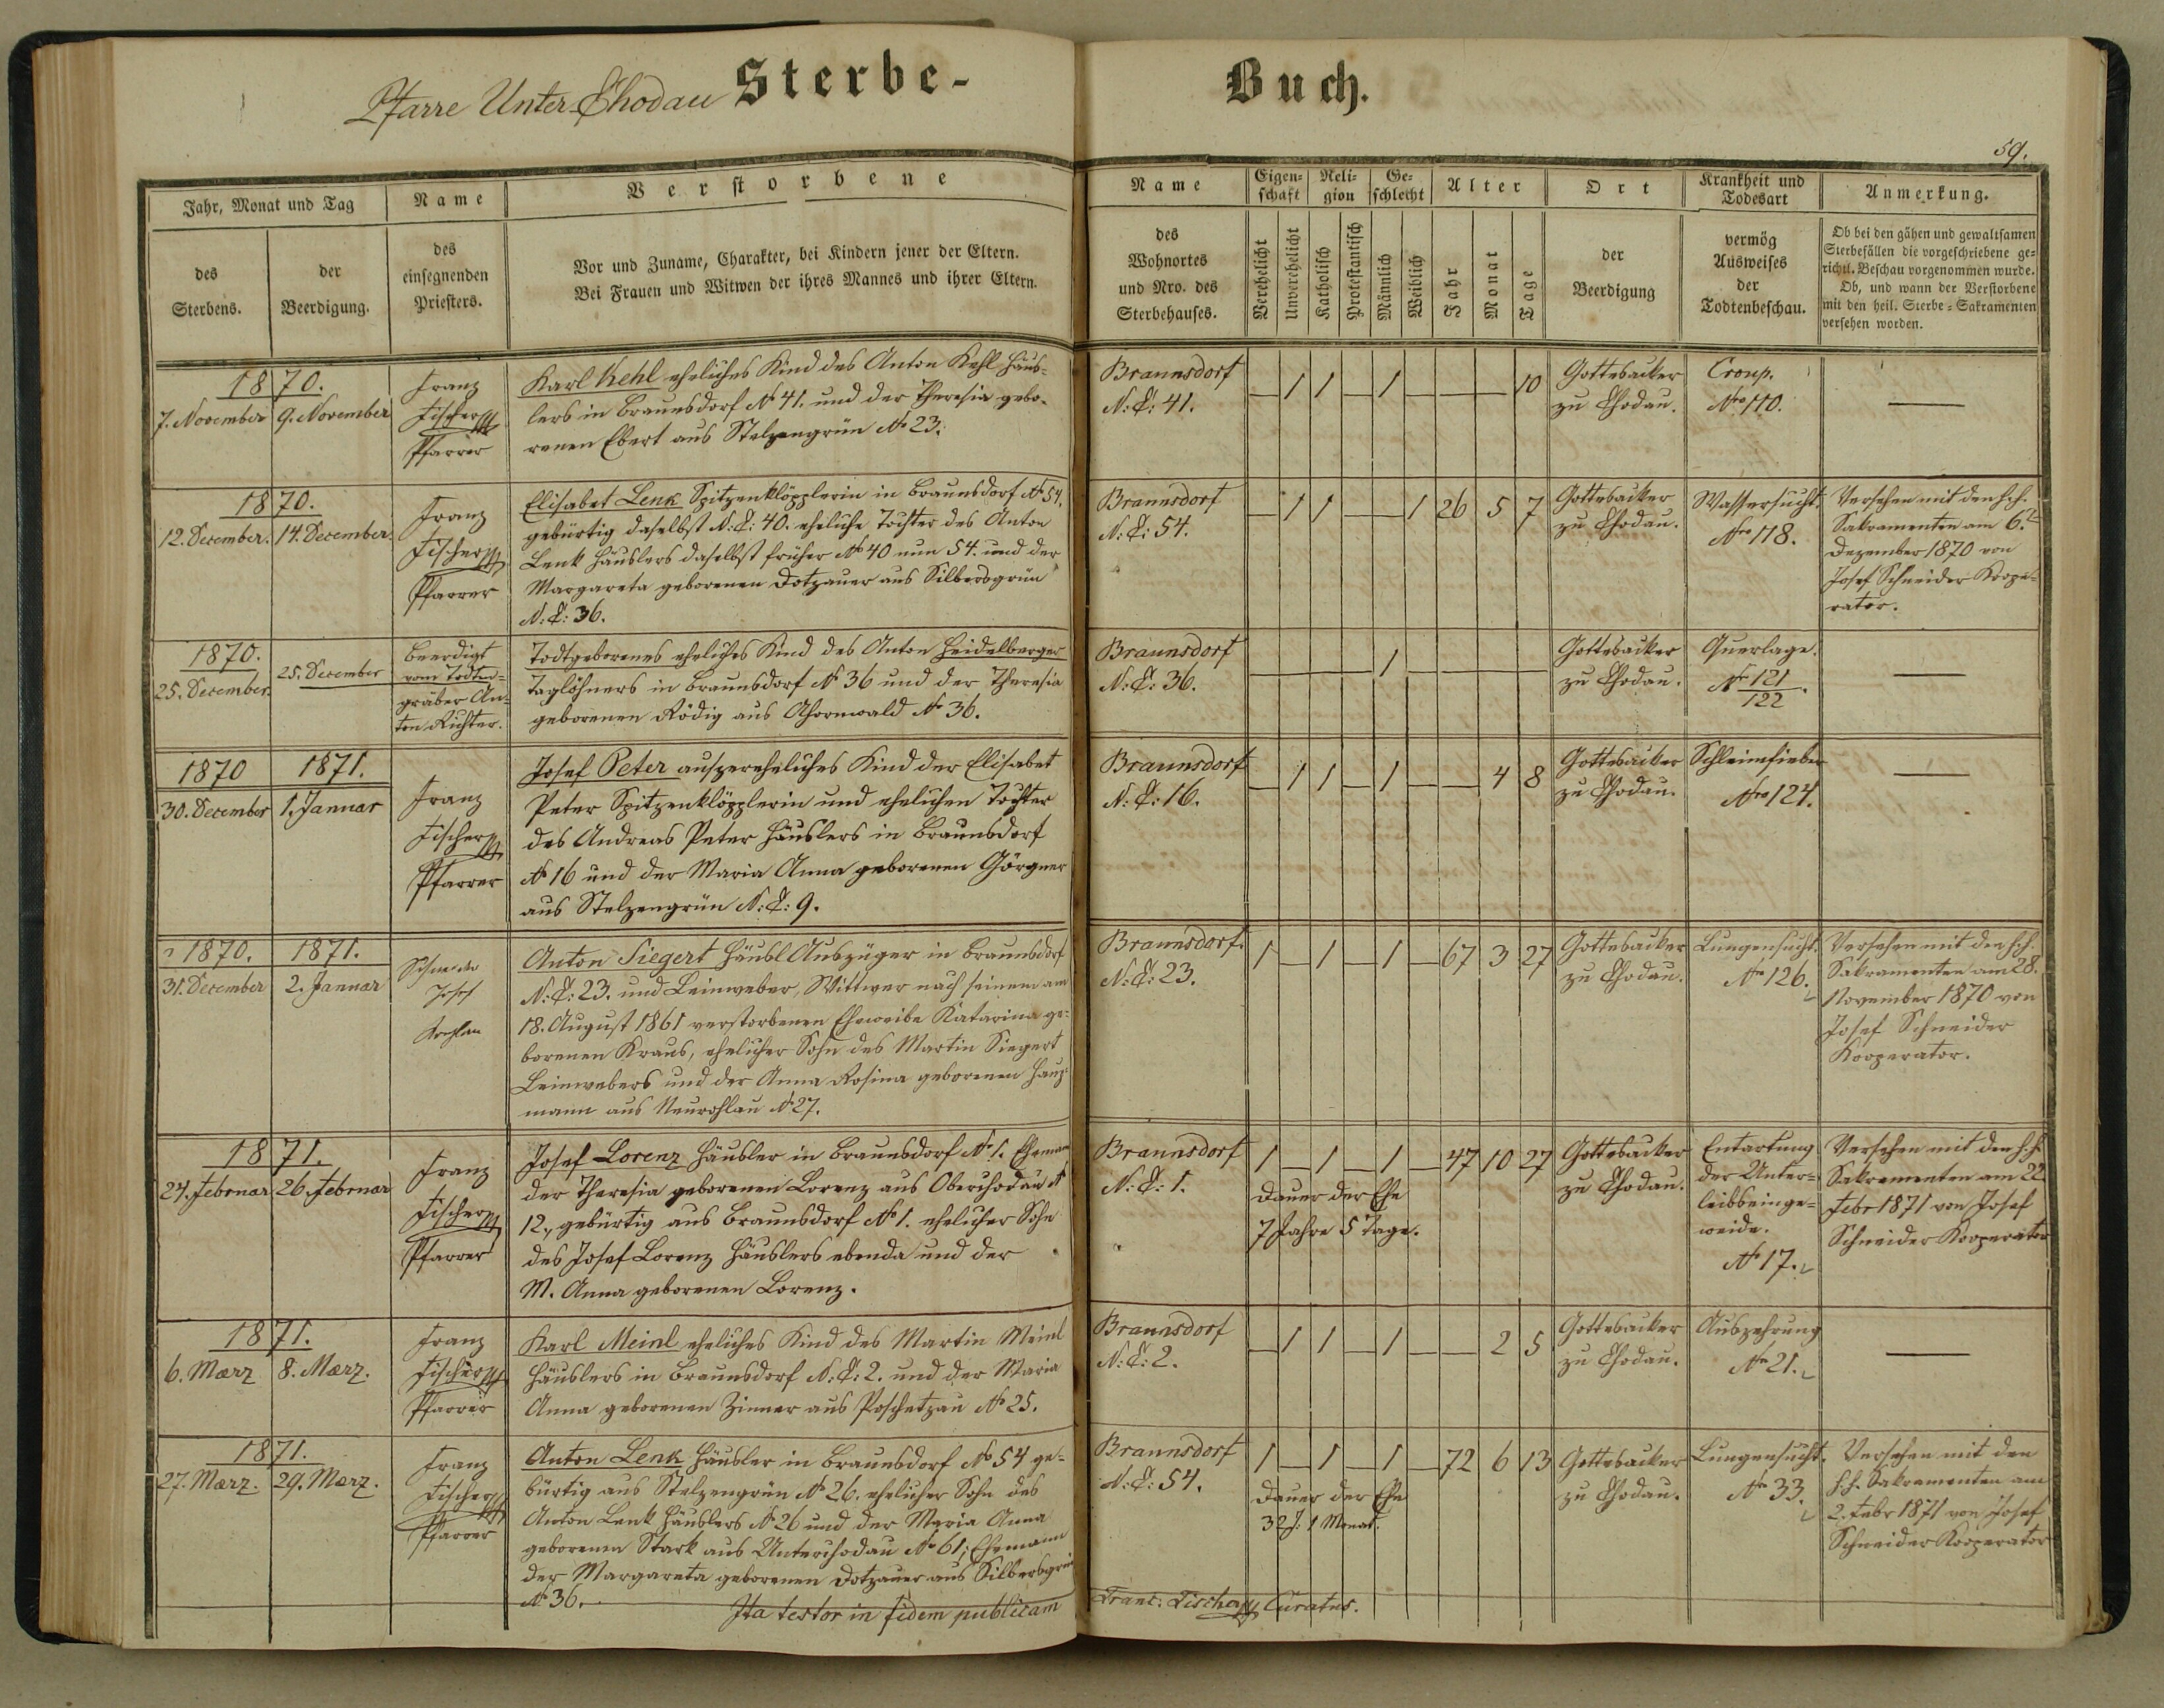 Pfarre Unter-Chodau Sterbe-Buch.
59.
Jahr, Monat und Tag
des
Sterbens.
der
Beerdigung.
Name
des
einsegnenden
Priesters.
Verstorbene
Vor und Zuname, Charakter, bei Kindern jener der Eltern.
Bei Frauen und Witwen der ihres Mannes und ihrer Eltern.
Name
des
Wohnortes
und Nro. des
Sterbehauses.
Eigen-
schaft
Verehelicht
Unverehelicht
Reli-
gion
Katholisch
Protestantisch
Ge-
schlecht
Männlich
Weiblich
Alter
Jahr
Monat
Tage
Ort
der
Beerdigung
Krankheit und
Todesart
vermög
Ausweises
der
Todtenbeschau.
Anmerkung.
Ob bei den gähen und gewaltsamen
Sterbefällen die vorgeschriebene ge-
richtl. Beschau vorgenommen wurde.
Ob, und wann der Verstorbene
mit den heil. Sterbe-Sakramenten
versehen worden.
1870.
7. November
9. November
Franz
Fischer
Pfarrer
Karl Kehl eheliches Kind des Anton Kehl Häus-
lers in Braunsdorf No 41. und der Theresia gebo-
renen Ebert aus Stelzengrün No 23.
Braunsdorf
N:C: 41.
1 1 1 10
Gottesacker
zu Chodau.
Croup.
Nro 110.
1870.
12. December.
14. December.
Franz
Fischer
Pfarrer
Elisabet Lenk Spitzenklöpplerin in Braunsdorf No 54.
gebürtig daselbst N:C: 40. eheliche Tochter des Anton
Lenk Häuslers daselbst früher No 40 nun 54. und der
Margareta geborenen Dotzauer aus Silbersgrün
N:C: 36.
Braunsdorf
N:C: 54.
1 1 1 26 5 7
Gottesacker
zu Chodau.
Wassersucht.
Nro 118.
Versehen mit den h.h.
Sakramenten am 6.
Dezember 1870 von
Josef Schneider Koope-
rator.
1870.
25. December.
25. December
Beerdigt
vom Todten-
gräber An-
ton Richter.
Todtgeborenes eheliches Kind des Anton Heidelberger
Taglöhners in Braunsdorf No 36 und der Theresia
geborenen Rödig aus Ahornwald No 36.
Braunsdorf
N:C: 36.
1
Gottesacker
zu Chodau.
Querlage.
No 121
122
1870
30. December
1871.
1. Januar
Franz
Fischer
Pfarrer
Josef Peter auszereheliches Kind der Elisabet
Peter Spitzenklöpplerin und ehelichen Tochter
des Andreas Peter Häuslers in Braunsdorf
No 16 und der Maria Anna geborenen Görgner
aus Stelzengrün N:C: 9.
Braunsdorf
N:C: 16.
1 1 1 4 8
Gottesacker
zu Chodau.
Schleimfieber
Nro 124.
1870.
31. December
1871.
2. Januar
Schneider
Josef
Anton Siegert Häusl Auszüger in Braunsdorf
N:C: 23. und Leinweber, Wittwer nach seinem am
18. August 1861 verstorbenen Eheweibe Katarina ge-
borenen Kraus, ehelicher Sohn des Martin Siegert
Leinwebers und der Anna Rosina geborenen Haup-
mann aus Neurohlau No 27.
Braunsdorf.
N:C: 23.
1 1 1 67 3 27
Gottesacker
zu Chodau.
Lungensucht.
Nro 126.
Versehen mit den h.h.
Sakramenten am 28.
November 1870 von
Josef Schneider
Kooperator.
1871.
24. Februar
26. Februar
Franz
Fischer
Pfarrer
Josef Lorenz Häusler in Braunsdorf No 1. Ehemann
der Theresia geborenen Lorenz aus Oberchodau No
12, gebürtig aus Braunsdorf No 1. ehelicher Sohn
des Josef Lorenz Häuslers ebenda und der
M. Anna geborenen Lorenz.
Braunsdorf
N:C: 1.
1 1 1 47 10 27
Dauer der Ehe
7 Jahre 5 Tage.
Gottesacker
zu Chodau.
Entartung
der Unter-
leibseinge-
weide.
No 17.
Versehen mit den h.h.
Sakramenten am 22.
Febr 1871 von Josef
Schneider Kooperator
1871.
6. Maerz
8. Maerz.
Franz
Fischer
Pfarrer
Karl Meinl eheliches Kind des Martin Meinl
Häuslers in Braunsdorf N:C: 2. und der Maria
Anna geborenen Zinner aus Poschetzau No 25.
Braunsdorf
N:C: 2.
1 1 1 2 5
Gottesacker
zu Chodau.
Auszehrung
Nro 21.
1871.
27. Maerz.
29. Maerz.
Franz
Fischer
Pfarrer
Anton Lenk Häusler in Braunsdorf No 54 ge-
bürtig aus Stelzengrün No 26. ehelicher Sohn des
Anton Lenk Häuslers No 26 und der Maria Anna
geborenen Stark aus Unterchodau No 61; Ehemann
der Margareta geborenen Dotzauer aus Silbersgrün
No 36.
Braunsdorf
N:C: 54.
1 1 1 72 6 13
Dauer der Ehe
32 J: 1 Monat.
Gottesacker
zu Chodau.
Lungensucht.
Nro 33.
Versehen mit den
h.h. Sakramenten am
2. Febr 1871 von Josef
Schneider Kooperator
Ita testor in fidem publicam Franc: Fischer Curatus.